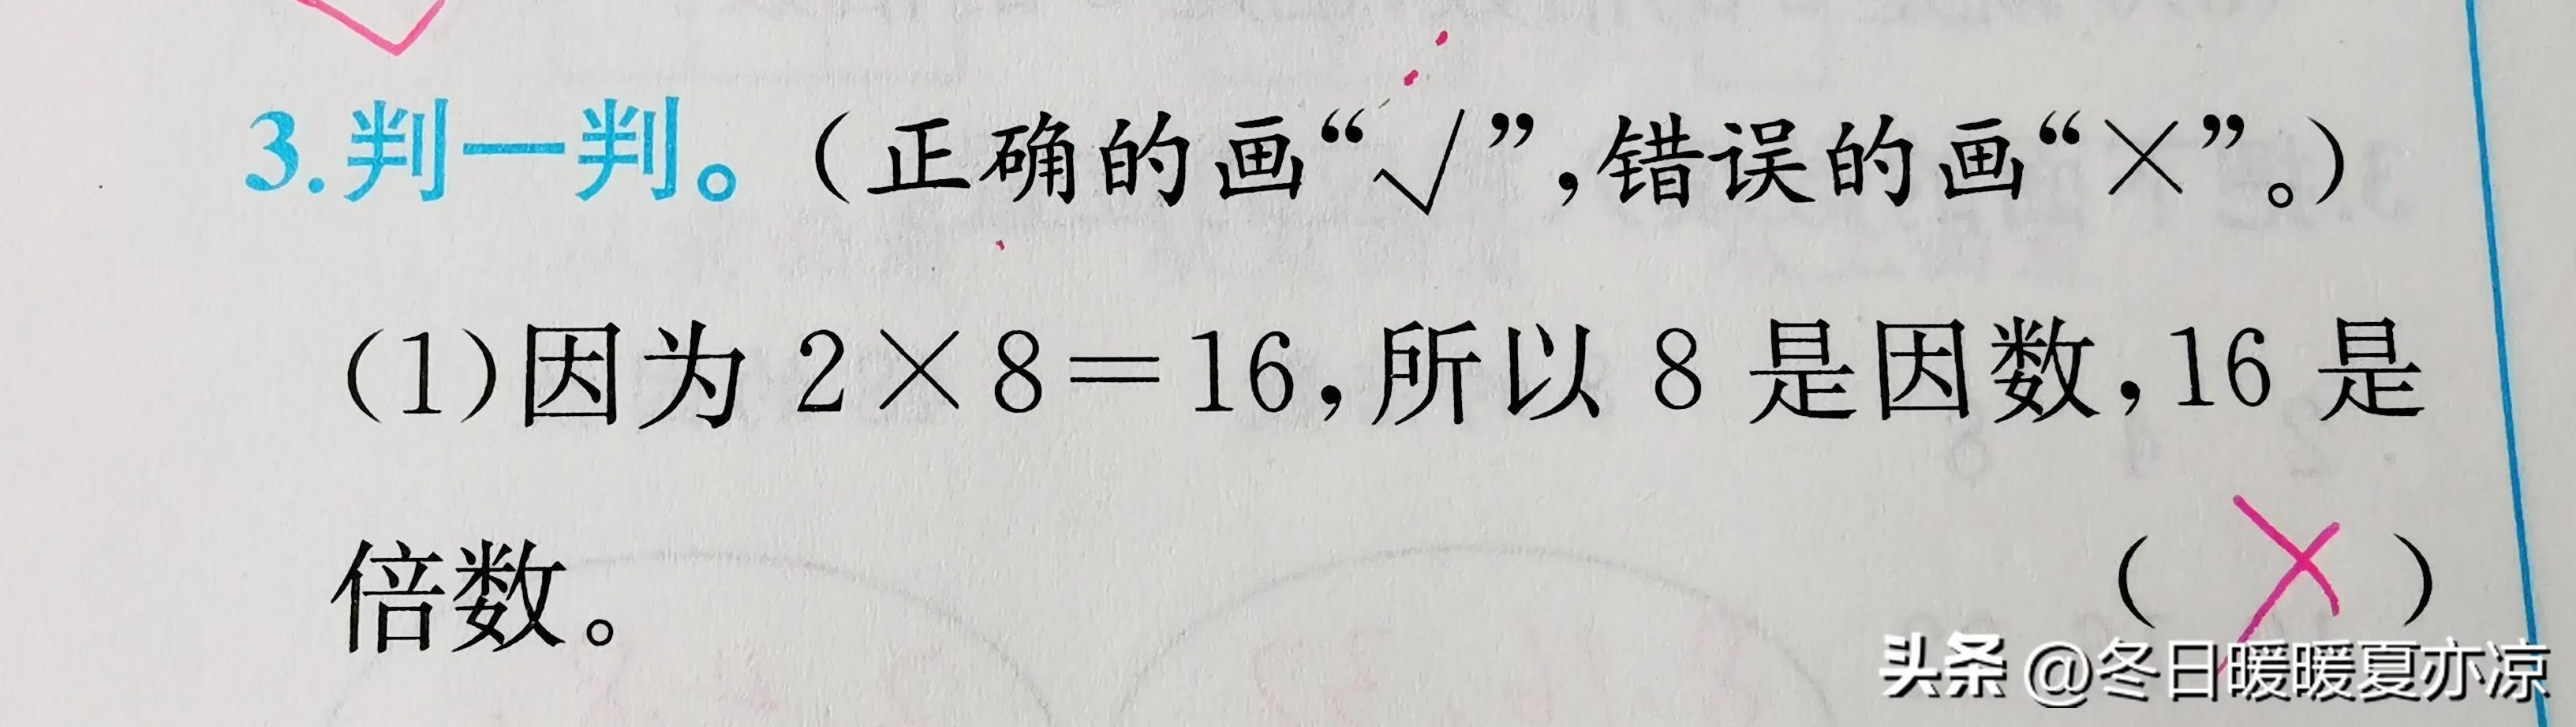 3.判一判。（正确的画“√”,错误的画“×”。）
(1)因为 2×8=16,所以 8 是因数,16 是
倍数。 （ × ）
头条 @冬日暖暖夏亦凉